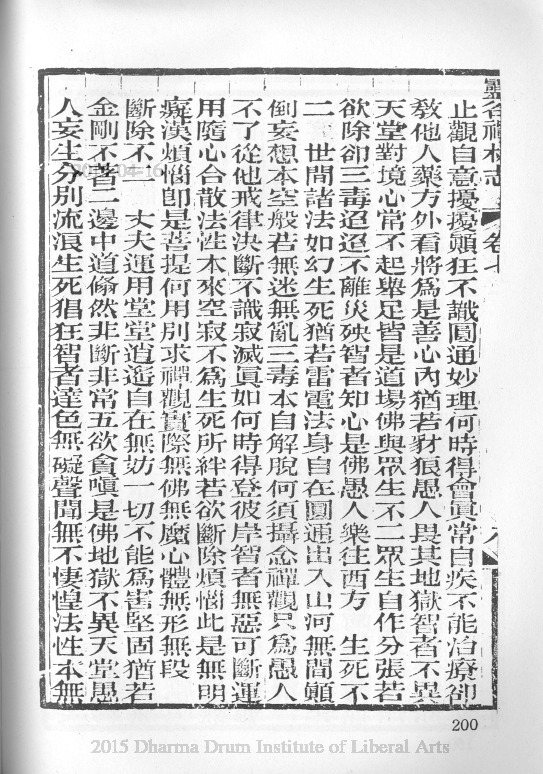 靈谷禪林志
卷七
八
止觀自意擾擾顛狂不識圓通妙理何時得會眞常自疾不能治療卻
敎他人藥方外看將爲是善心內猶若豺狼愚人畏其地獄智者不異
天堂對境心常不起舉足皆是道場佛與眾生不二眾生自作分張若
欲除卻三毒迢迢不離災殃智者知心是佛愚人樂往西方　生死不
二　世間諸法如幻生死猶若雷電法身自在圓通出入山河無間顛
倒妄想本空般若無迷無亂三毒本自解脫何須攝念禪觀只爲愚人
不了從他戒律決斷不識寂滅眞如何時得登彼岸智者無惡可斷運
用隨心合散法性本來空寂不爲生死所絆若欲斷除煩惱此是無明
癡漢煩惱卽是菩提何用別求禪觀實際無佛無魔心體無形無段
斷除不二　丈夫運用堂堂逍遙自在無妨一切不能爲害堅固猶若
金剛不著二邊中道翛然非斷非常五欲貪嗔是佛地獄不異天堂愚
人妄生分別流浪生死猖狂智者達色無礙聲聞無不悽惶法性本無
200
2015 Dharma Drum Institute of Liberal Arts